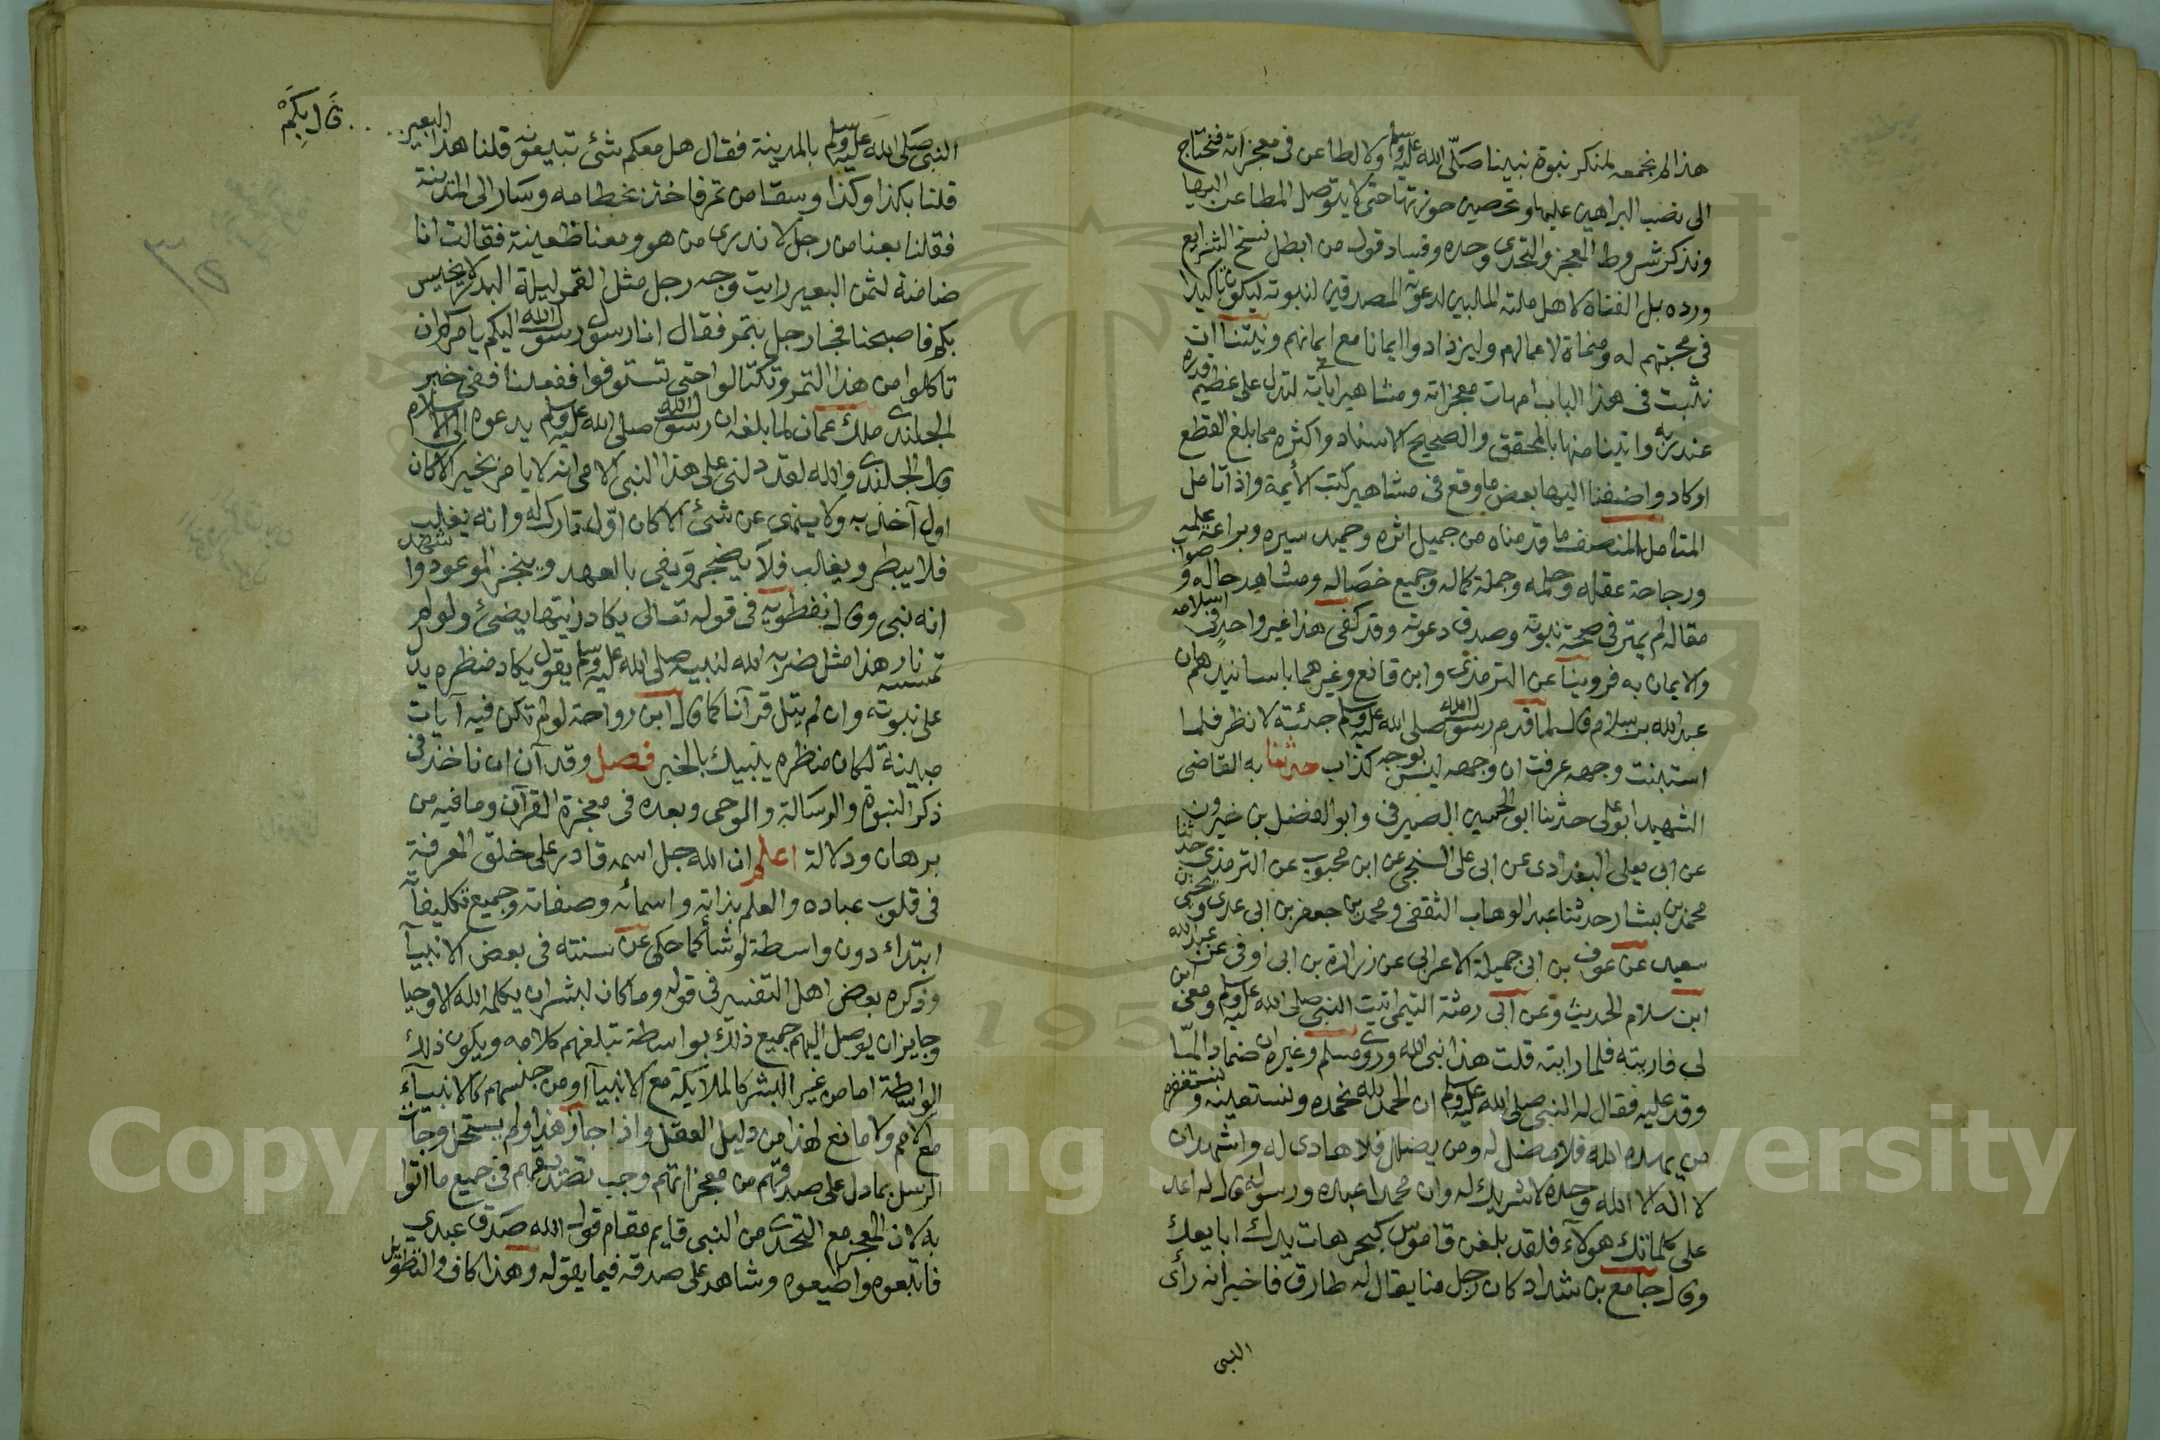 هذا لم نجمعه لمنكر نبوة نبينا صلى الله عليه وسلم ولا لطاعن في معجزاته فنحتاج
الى نصب البراهين عليها وتحصين حوزتها حتى لا يتوصل المطاعن اليها
ونذكر شروط المعجز والتحدي وحده وفساد قول من ابطل نسخ الشرايع
ورده بل الفناه لاهل ملته الملبين لدعوته المصدقين لنبوته ليكون تاكيدا
في محبتهم له ومنماة لاعمالهم وليزدادوا ايمانا مع ايمانهم ونيتنا ان
نثبت في هذا الباب امهات معجزاته ومشاهير اياته لتدل على عظيم قدره
عند ربه واتينا منها بالمحقق والصحيح الاسناد واكثره مما بلغ القطع
او كاد واضفنا اليها بعض ما وقع في مشاهير كتب الأيمة واذا تامل
المتامل المنصف ما قدمناه من جميل اثره وحميد سيره وبراعة علمه
ورجاحة عقله وحلمه وجملة كماله وجميع خصاله ومشاهد حاله وصواب
مقاله لم يمتر في صحة نبوته وصدق دعوته وقد كفى هذا غير واحد في اسلامه
والايمان به فروينا عن الترمذي وابن قانع وغيرهما باسانيدهم ان
عبد الله بن سلام قال لما قدم رسول الله صلى الله عليه وسلم جئته لانظر فلما
استبنت وجهه عرفت ان وجهه ليس بوجه كذاب حدثنا به القاضي
الشهيد ابو علي حدثنا ابو الحسين الصيرفي وابو الفضل بن خيرون
عن ابي يعلى البغدادي عن ابي على السنجي عن ابن محبوب عن الترمذي حدثنا
محمد بن بشار حدثنا عبد الوهاب الثقفي ومحمد بن جعفر بن ابي عدي ويحيى بن
سعيد عن عوف بن ابي جميلة الاعرابي عن زرارة بن ابي اوفى عن عبد الله
ابن سلام الحديث وعن ابي رمثة التيمي اتيت النبي صلى الله عليه وسلم ومعي ابن
لي فاريته فلما رايته قلت هذا نبي الله وروى مسلم وغيره ان ضمادا لمّا
وفد عليه فقال له النبي صلى الله عليه وسلم ان الحمد لله نحمده ونستعينه ونستغفره
من يهده الله فلا مضل له ومن يضلل فلا هادي له واشهد ان
لا اله الا الله وحده لا شريك له وان محمدا عبده ورسوله قال له اعد
على كلماتك هولآء فلقد بلغن قاموس البحر هات يدك ابايعك
وقال جامع بن شداد كان رجل منا يقال له طارق فاخبر انه رأى
النبي
قال بكم
النبي صلى الله عليه وسلم بالمدينة فقال هل معكم شئ تبيعونه قلنا هذا البعير
قلنا بكذا وكذا وسقا من تمر فاخذ بخطامه وسار الى المدينة
فقلنا بعنا من رجل لا ندري من هو ومعنا ظعينة فقالت انا
ضامنة لثمن البعير رايت وجه رجل مثل القمر ليلة البدر لا يخيس
بكم فاصبحنا فجا رجل بتمر فقال انا رسول رسول الله اليكم يامركم ان
تاكلوا من هذا التمر وتكتالوا حتى تستوفوا ففعلنا ففي خبر
الجلندي ملك عمان لما بلغه ان رسول الله صلى الله عليه وسلم يدعوه الى الاسلام
قال الجلندي والله لقد دلني على هذا النبي الامي انه لا يامر بخير الا كان
اول آخذ به ولا ينهى عن شئ الا كان اوّل تارك له وانه يغلب
فلا يبطر ويغالب فلا يضجر ويفي بالعهد وينجز الموعود واشهد
انه نبي وقال نفطويه في قوله تعالى يكاد زيتها يضئ ولو لم
تمسسه نار هذا مثل ضربه الله لنبيه صلى الله عليه وسلم يقول يكاد منظره يدل
على نبوته وان لم يتل قرآنا كما قال ابن رواحة لو لم تكن فيه آيات
مبينة لكان منظره ينبيك بالخبر فصل وقد آن ان ناخذ في
ذكر النبوة والرسالة والوحي وبعده في معجزة القرآن وما فيه من
برهان ودلالة اعلم ان الله جل اسمه قادر على خلق المعرفة
في قلوب عباده والعلم بذاته واسمائه وصفاته وجميع تكليفاته
ابتداء دون واسطة لو شأ كما حكي عن سنته في بعض الانبيآ
وذكره بعض اهل التفسير في قوله وما كان لبشر ان يكلمه الله الا وحيا
وجايز ان يوصل اليهم جميع ذلك بواسطة تبلغهم كلامه ويكون ذلك
الواسطة اما من غير البشر كالملآيكة مع الانبيآ او من جنسهم كالانبيآء
مع الامم ولا مانع لهذا من دليل العقل واذا جاز هذا ولم يستحل وجات
الرسل بما دل على صدقهم من معجزاتهم وجب تصديقهم في جميع ما اتوا
به لان المعجز مع التحدي من النبي قايم مقام قول الله صدق عبدي
فاتبعوه واطيعوه وشاهد على صدقه فيما يقوله وهذا كاف والتطويل
Copyright © King Saud University
195